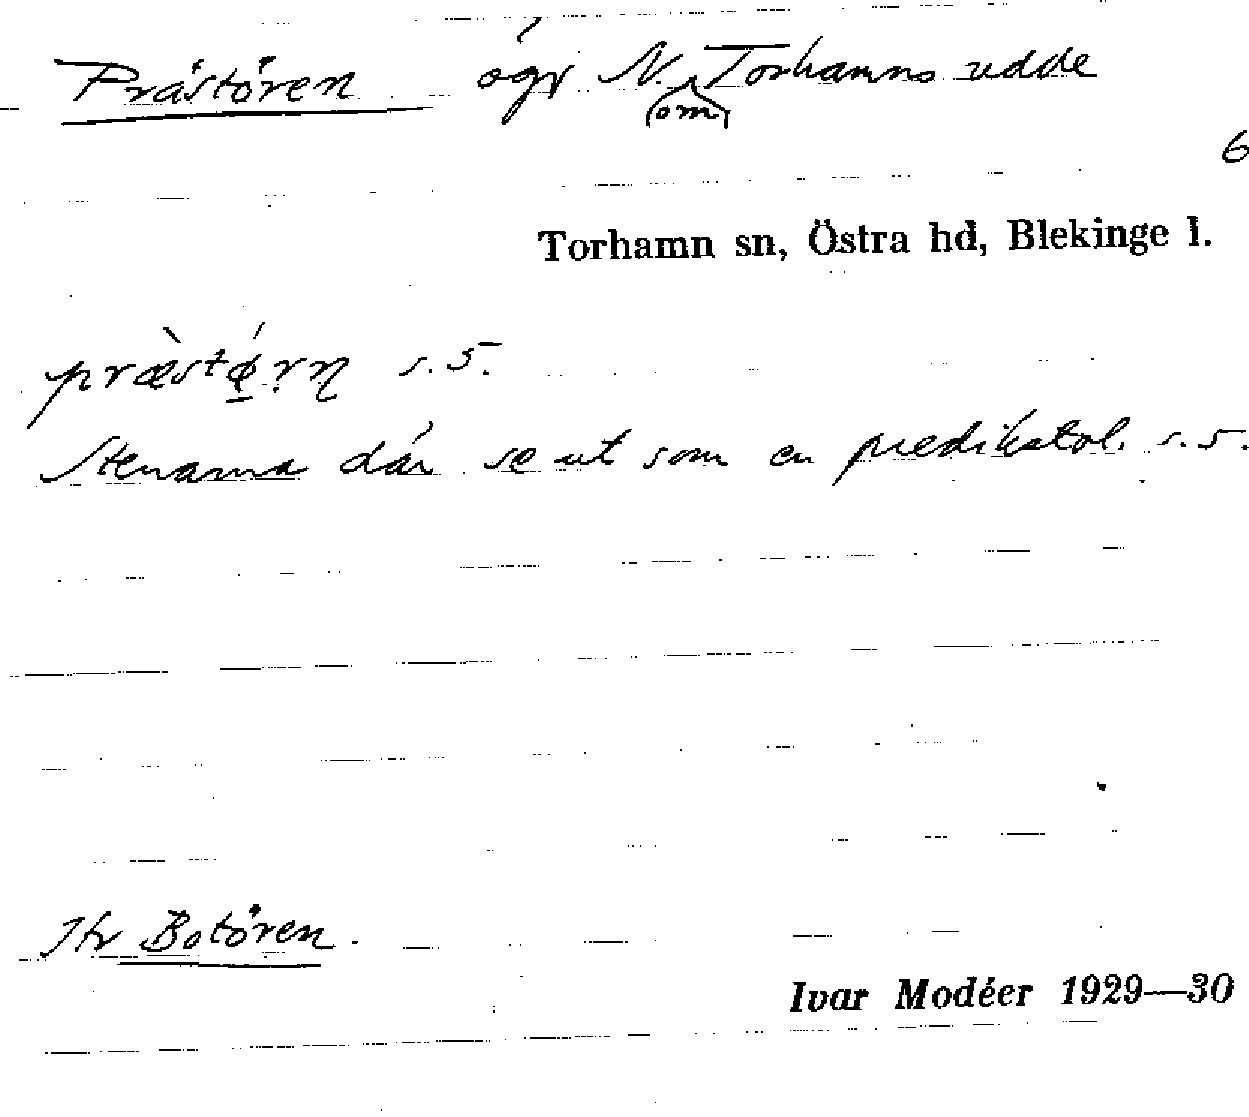 Prästören ögr N. (om) Torhamns udde
6
Torhamn sn, Östra hd, Blekinge l.
præ̀stǿ̱rṇ s.5.
Stenarna där se ut som en predikstol. s.5.
Jfr Botören.
Ivar Modéer 1929—30